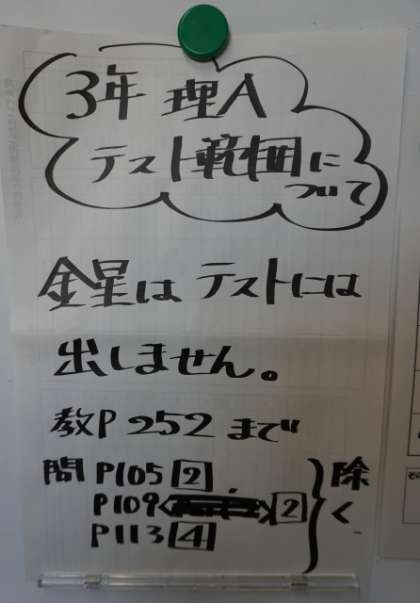 3年 理A
テスト範囲に
ついて
金星は テストには
出しません。
教P 252 まで
問 P105 2 除
P109 2 く
P113 4